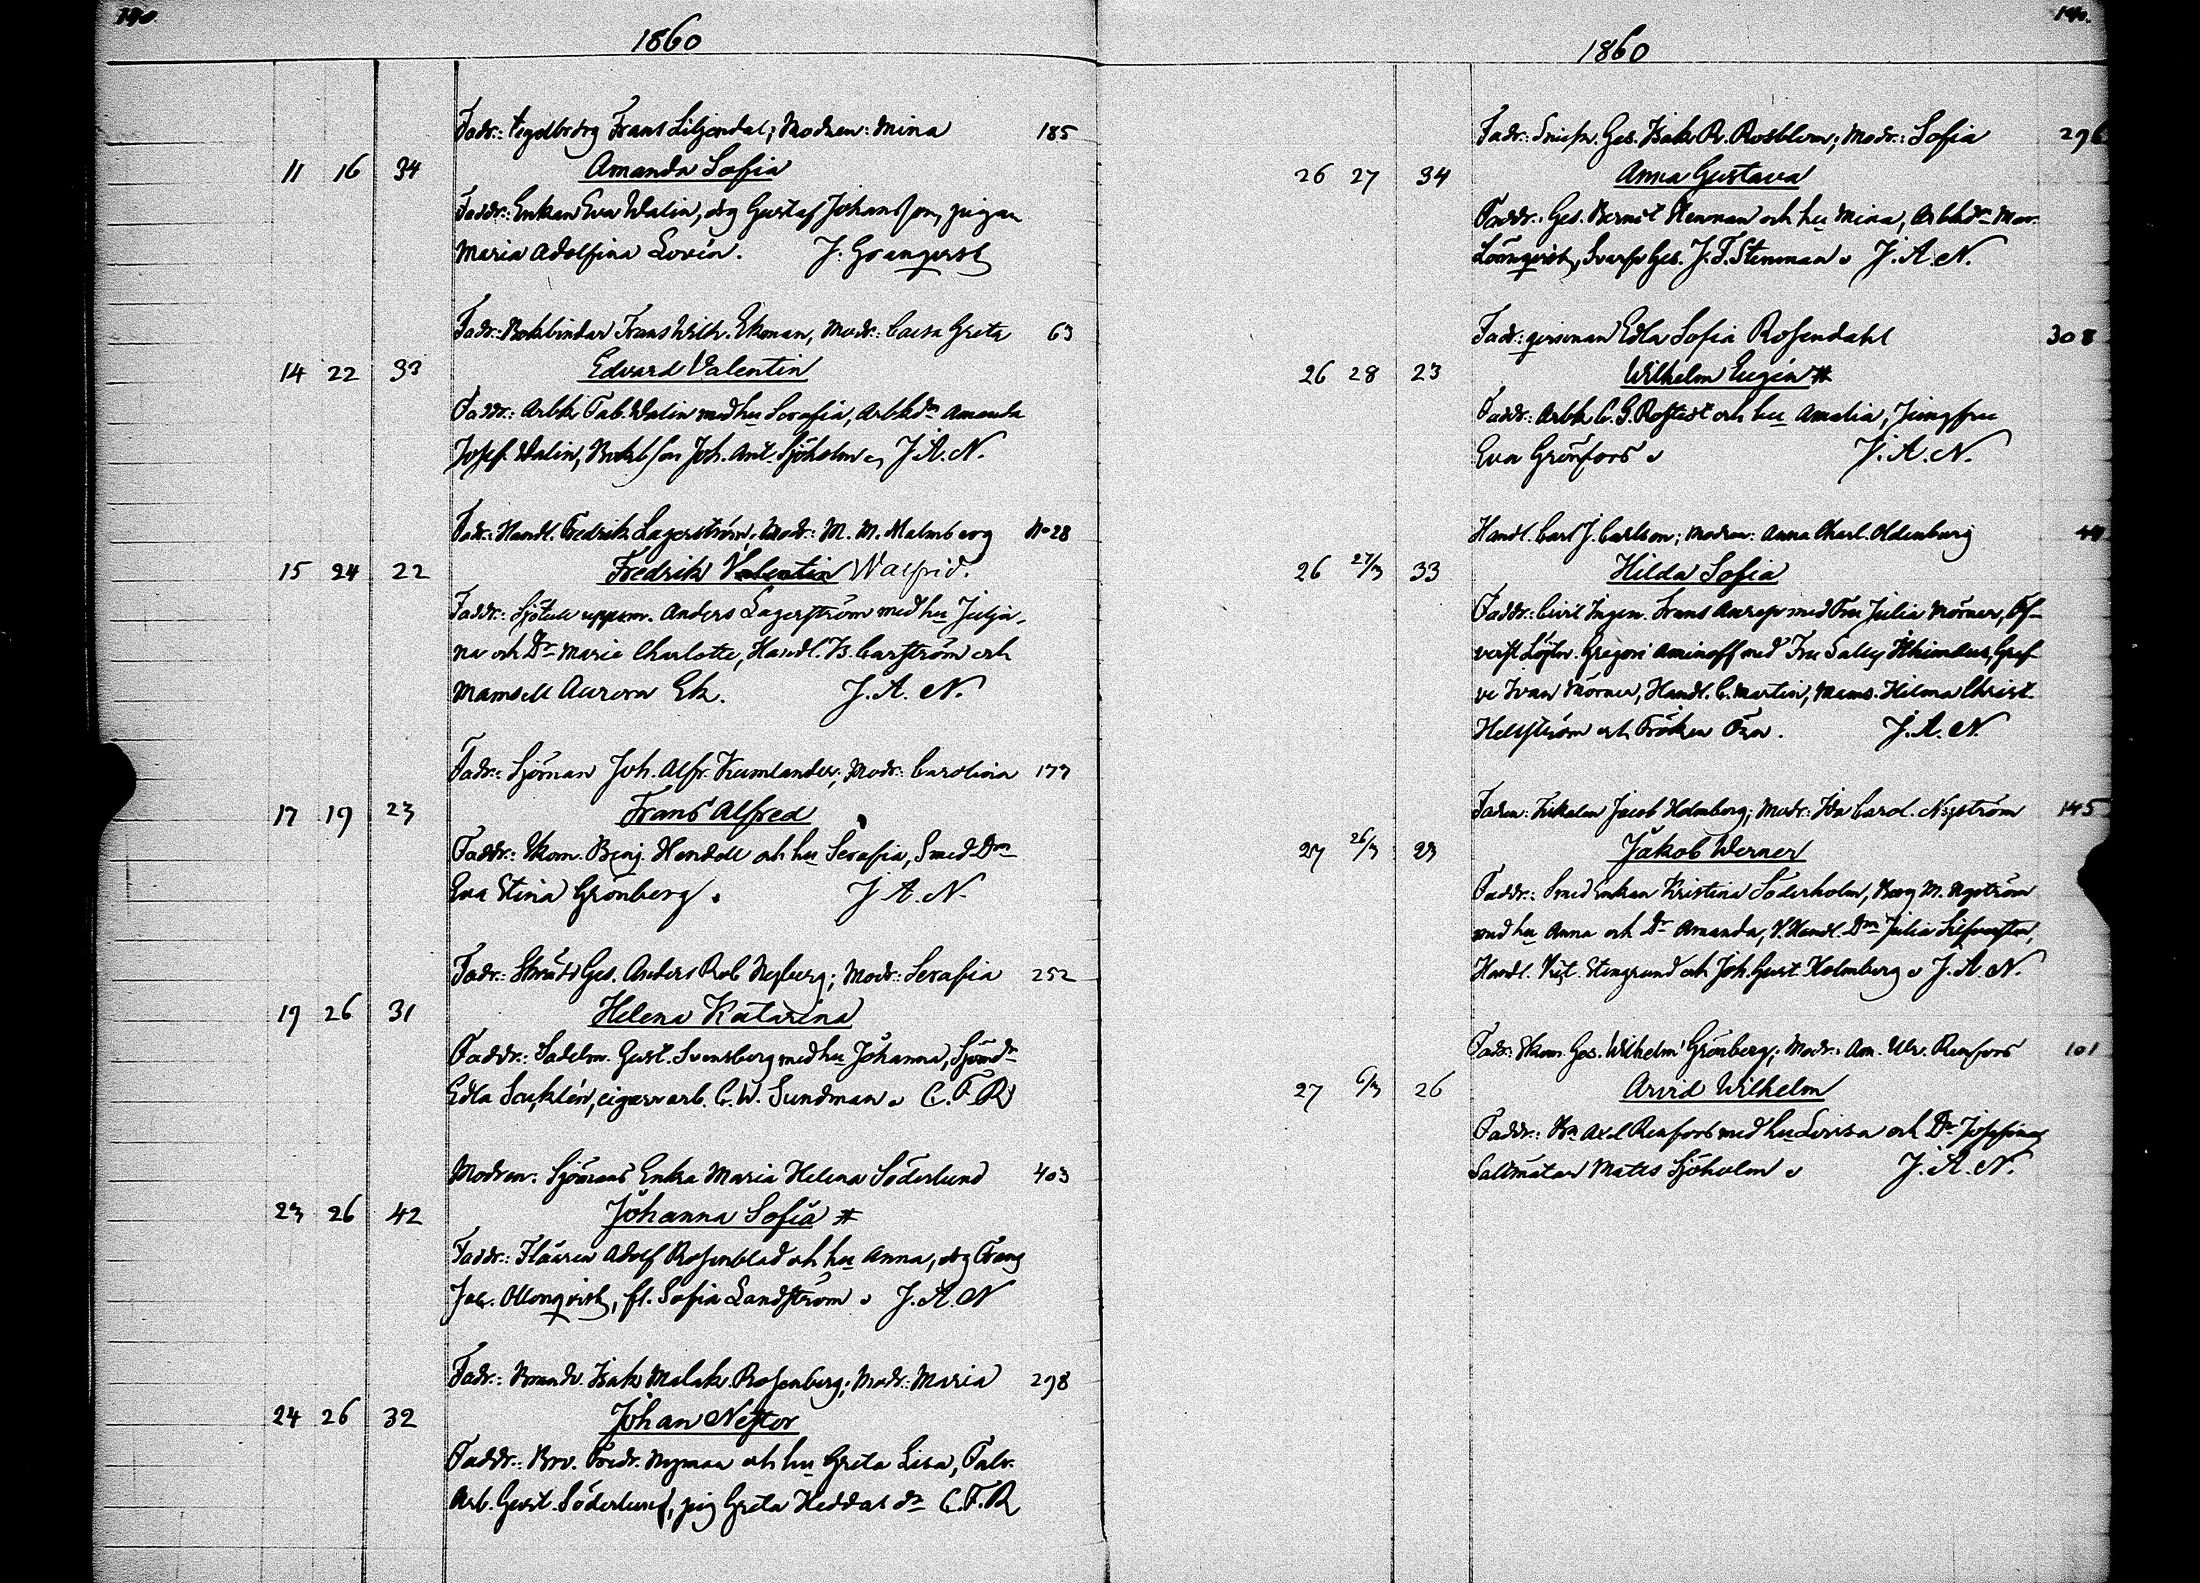 190.
1860
Fadr: tegelbrdrg Frans Liljendal; Modren: Mina 185
11 16 34 Amanda Sofia
Faddr: Enkan Eva Walin, drg Gustaf Johansson, pigan
Maria Adolfina Lovén. J. Granqvist
Fadr: Bokbindar Frans Wilh. Ekman, Modr: Caisa Greta 63
14 22 33 Edvard Valentin
Faddr: Arbk Fab. Walin med hu Serafia, Arbkdr Amanda
Josef. Walin, Joh. Ant. Sjöholm J. A. N.
Fadr: Handl. Fredrik Lagerström, Modr: M. M. Malmberg No 28
15 24 22 Fredrik Valentin Walfrid.
Faddr: uppsm. Anders Lagerström med hu Julja-
na och Dr Maria Charlotte, Handl. B. Carström och
Mamsell Aurora Ek. J. A. N.
Fadr: Sjöman Joh. Alfr. Kumlander; Modr: Carolina 177
17 19 23 Frans Alfred
Faddr: Skom. Benj. Hendell och hu Serafia, Smed Drn
Eva Stina Grönberg. J. A. N.
Fadr: Ges. Anders Rob Nyberg; Modr: Serafia 252
19 26 31 Helena Katarina
Faddr: Sadelm. Gust. Svensberg med hu Johanna, Sjömdr
Edla cigarrarb. C. W. Sundman C. F. R
Modren: Sjömans Enka Maria Helena Söderlund 403
23 26 42 Johanna Sofia #
Faddr: Adolf Rosenblad och hu Anna, drg Frans
Jac. Ollonqvist, fl. Sofia Landström J. A. N
Fadr: Isak Malak. Rosenberg; Modr: Maria 298
24 26 32 Johan Nestor
Faddr: Fredr. Nyman och hu Greta Lisa, Fabr.
Arb. Gust. Söderlund, pig Greta Heddas dr C. F. R
190.
1860
Fadr: Ges. Isak R. Rosblom; Modr: Sofia 296
26 27 34 Anna Gustava
Faddr: Ges. Berndt Stenman och hu Mina, Arbkdr Mar.
Lönnqvist, Ges. J. F. Stenman J. A. N.
Fadr: Edla Sofia Rosendahl 308
26 28 23 Wilhelm Eugén #
Faddr: Arbk C. G. och hu Amalia, Jungfru
Eva Grönfors J. A. N.
Handl. Carl J. Carlson; Modren: Anna Charl. Oldenburg 44
26 27/3 33 Hilda Sofia
Faddr: Civil Ingen. Frans Anrep med Fru Julia Mörner, Öf-
verst Löjtn. Gregori Aminoff med Fru Sally Gref-
ve Ivan Mörner, Handl. C. Martin, Mams. Hilma Christ.
Hellström och Fröken J. A. N.
Fadren: Fiskalen Jacob Holmberg; Modr: Ida Carol. Nyström 145
27 26/3 23 Jakob Werner
Faddr: Smed Enkan Kristina Söderholm, Borg M. Nyström
med hu Anna och Dr Amanda, V. Handl. Drn Julia
Handl. Vikt. Stengrund och Joh. Gust. Holmberg J. A. N.
Fadr: Skom. Ges. Wilhelm Grönberg; Modr: Am. Ulr. Renfors 101
27 6/3 26 Arvid Wilhelm
Faddr: Axel Renfors med hu Lovisa och Dr Josefina
Saltmätar Matts Sjöholm J. A. N.